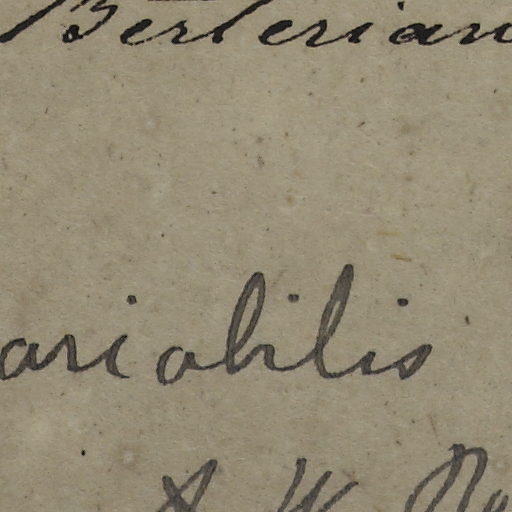 Berterian
ariabilis
A W